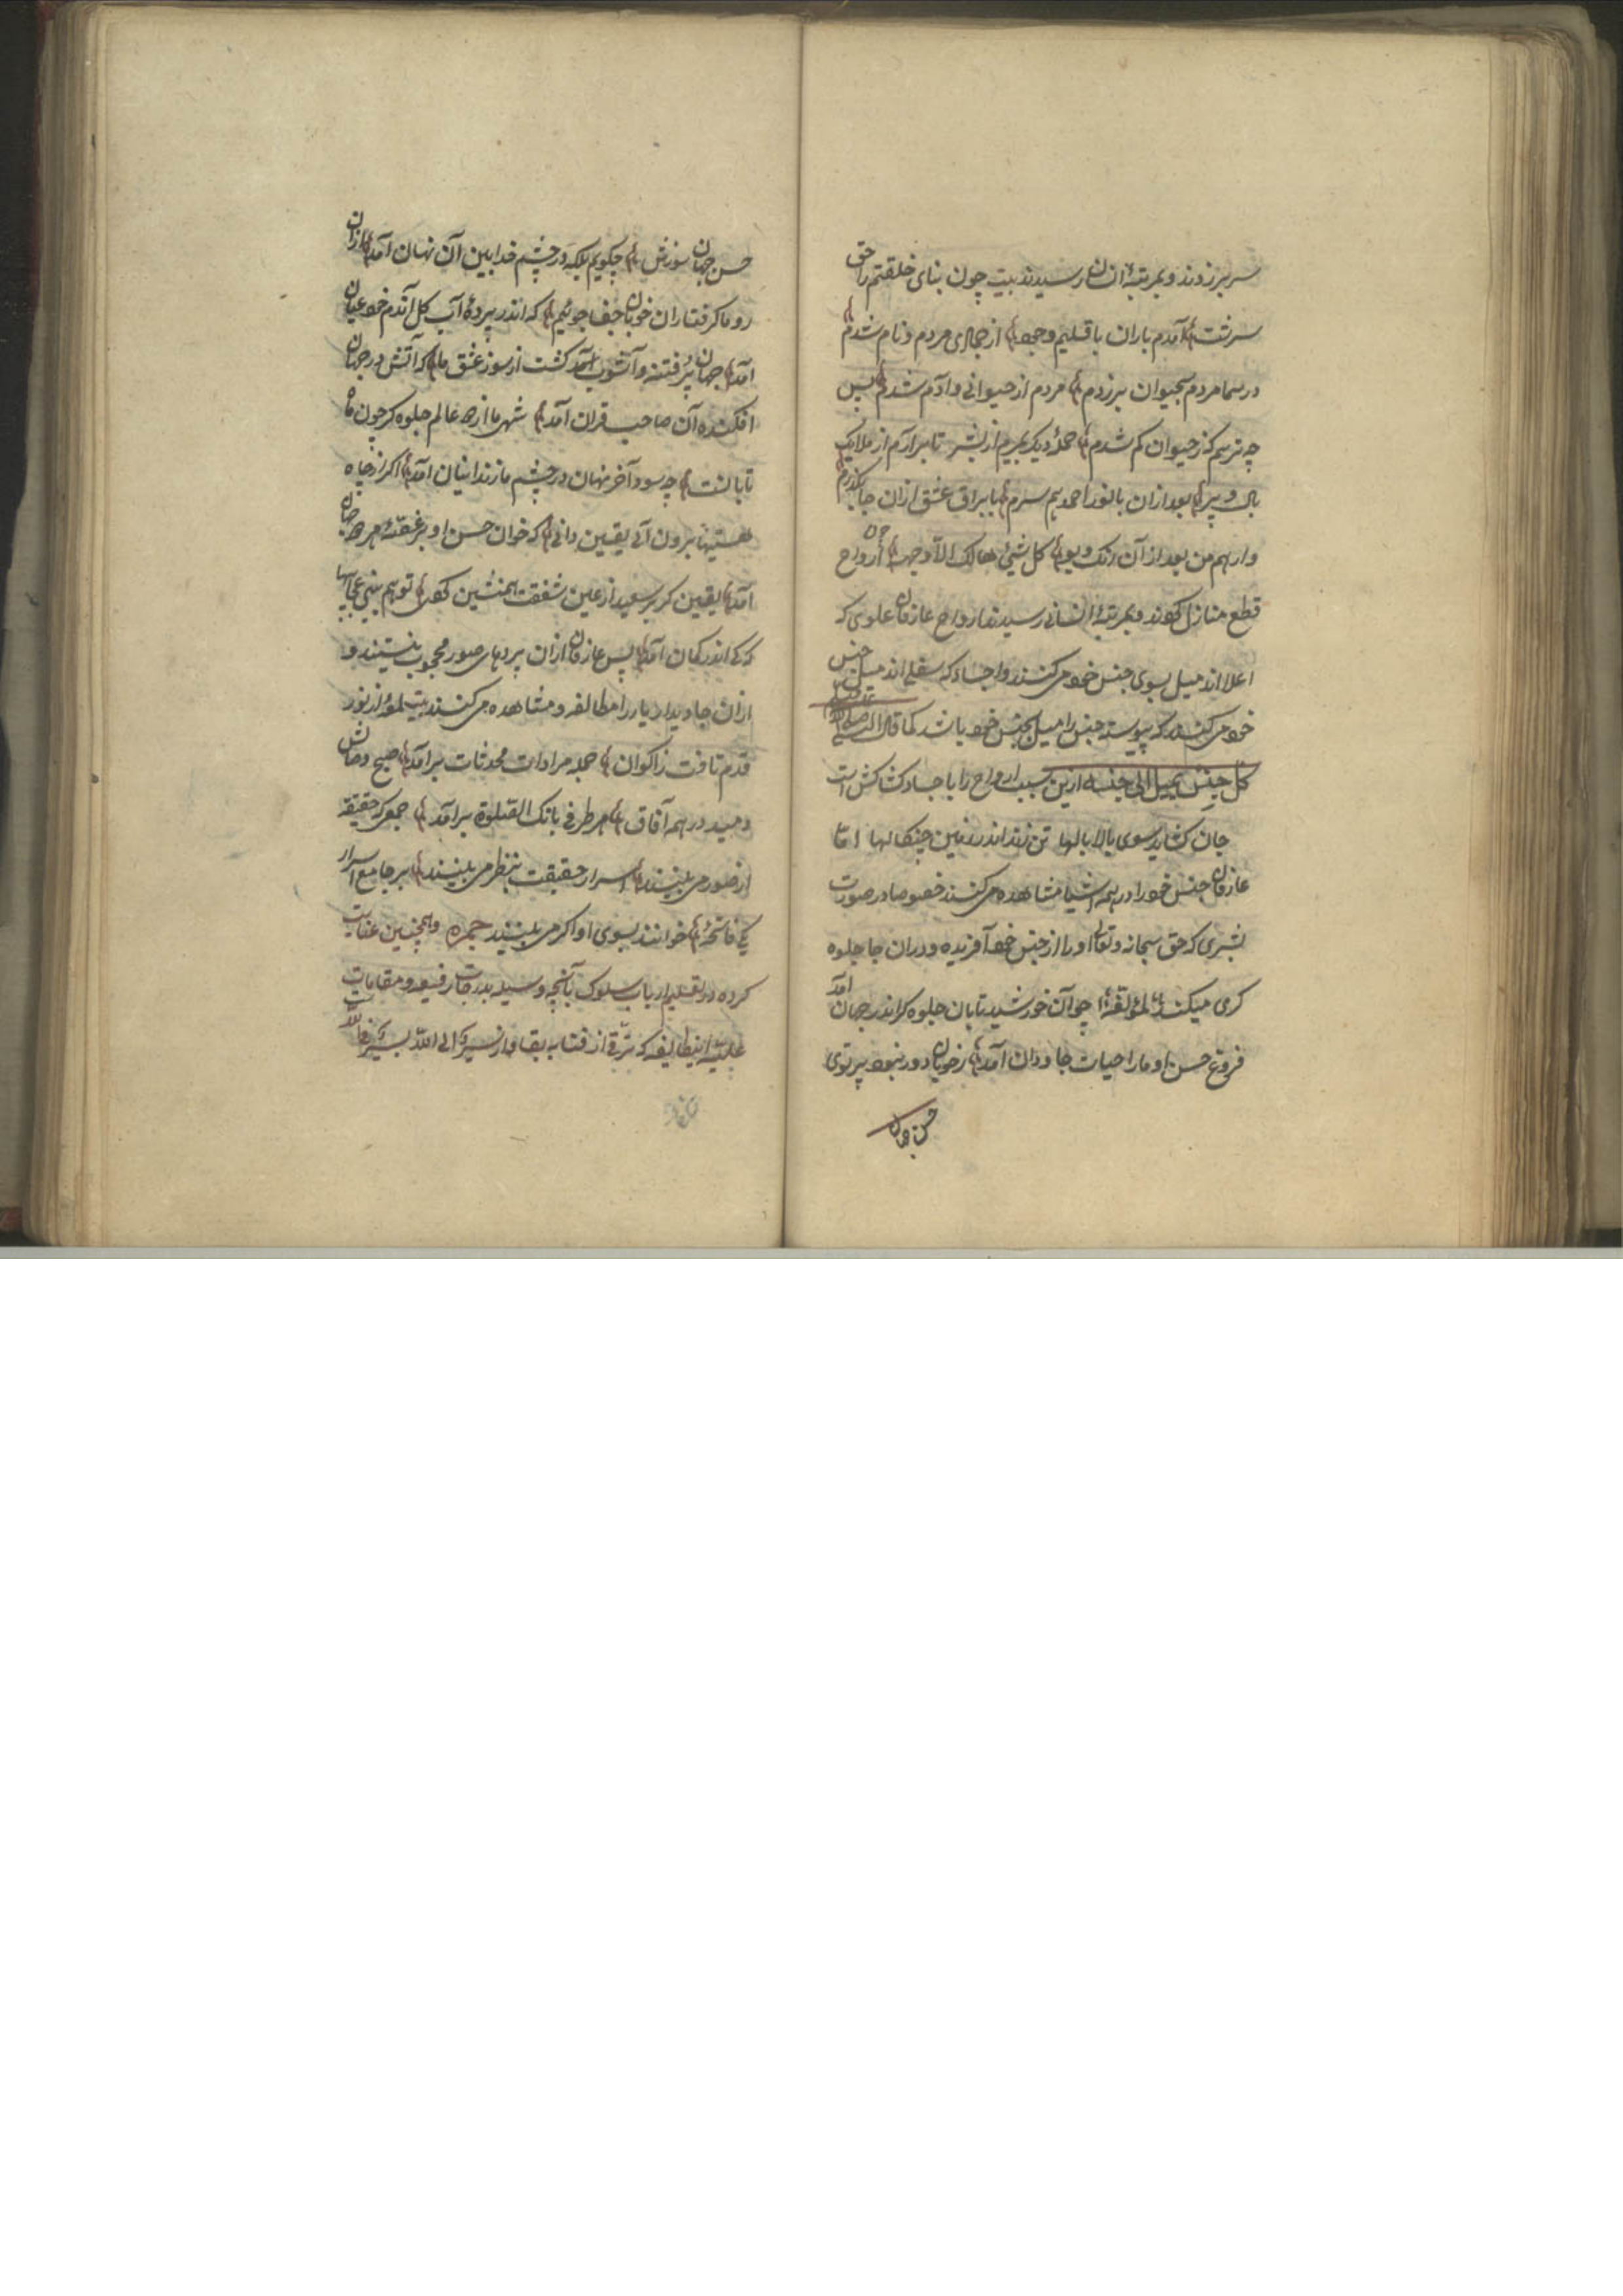 سر برزدند و بمرتبهٔ انسان رسیدند بیت چون بنای خلقتم را حق
سرشت آمدم باران باقلیم وجود از جمادی مردم و نام شدم
در سما مردم بحیوان برزدم مردم از حیوانی و آدم شدم پس
چه ترسم کز حیوان کم شدم حملهٔ دیکر بمیرم از بشر تا برارم از ملایک
بال و پر بعد ازان با نور احمد هم سرم با براق عشق ازان جا بکذرم
وارهم من بعد از آن رنک و بو کل شیئ هالک الا وجهه چون ارواح
قطع منازل کردند و بمرتبهٔ انسانی رسیدند ارواح عارفان علوی که
اعلا اند میل بسوی جنس خود می کنند و اجساد که سفلی اند میل جنس
خود می کنند که پیوسته جنس را میل بجنس خود باشد کما قال النبی صلی الله علیه
کل جنس یمیل الی جنسه ازین سبب ارواح را با اجساد کشاکش است
جان کشاید سوی بالا بالها تن زند اندر زمین چنکالها اما
عارفان جنس خود را در همه اشیا مشاهده می کنند خصوصا در صورت
بشری که حق سبحانه و تعالی او را از جنس خود آفریده و دران جا جلوه
کری میکند لمؤلفه چو آن خورشید تابان جلوه کر اندر جهان آمد
فروغ حسن او ما را حیات جاودان آمد ز خوبان دور نبود پرتوی
حسن جهان
حسن جهان سوزش چکویم بلکه در چشم خدا بین آن نهان آمد ازان
رو ما کرفتاران خوبان جفا جوئیم که اندر پردهٔ آب کل آندم خود عیان
آمد جهان پر فتنه و آشوب آمد کشت از سوز عشق ما که آتش در جهان
افکنده آن صاحب قران آمد شه ما از همه عالم جلوه کر چون ماه
تابانست چه سود آخر نهان در چشم ما زندانیان آمد اکر از چاه
هستیها برون آئی یقین دانی که خوان حسن او بر غرفهٔ هر جان
آمد یقین کر بر سعید از عین شفقت همنشین کردد تو هم بینی عجایبها
که کی اندر کمان آمد پس عارفان ازان پردهای صور محجوب نیستند و
ازان جا دیدار یار را مطالعه و مشاهده می کنند بیت لمعهٔ از نور
قدم تافت ز اکوان جمله مرادات محدثات برآمد صبح وصالش
دمید در همه آفاق هر طرفی بانک الصلوة برآمد جمعی که حقیقة
از صور می بینند اسرار حقیقت بنظر می بینند بر جامع اسرار
یکی فاتحهٔ خوانند بسوی او اکر می بینند حمزه و همچنین عنایت
کرده در تعلیم ارباب سلوک بآنچه وسیله بدرجات رفیعه و مقامات
علیّه اینطایفه که ترقی از فنا به بقا و از سیر الی الله بسیر فی الله است